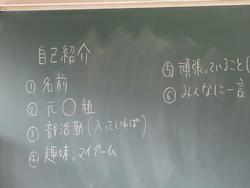 自己紹介
① 名前
② 元〇組
③ 部活動(入っていれば)
④ 趣味、マイブーム
⑤ 頑張っていること(
⑥ みんなに一言